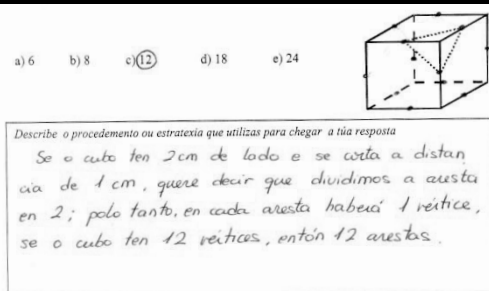 a) 6 b) 8 c) 12 d) 18 e) 24
Describe o procedemento ou estratexia que utilizas para chegar a túa resposta
Se o cubo ten 2 cm de lado e se corta a distan
cia de 1 cm, quere decir que dividimos a aresta
en 2; polo tanto, en cada aresta haberá 1 vértice,
se o cubo ten 12 vértices, entón 12 arestas.